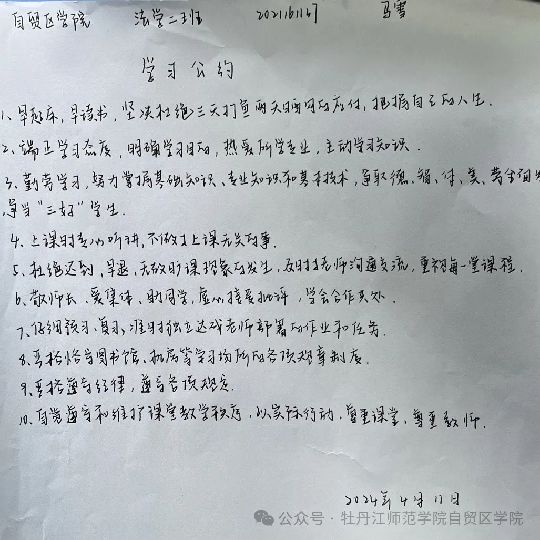 自贸区学院 法学二班 马雪
学习公约
1、早起床,早读书,坚决杜绝三天打鱼两天晒网的应付,把握自己的人生.
2、端正学习态度,明确学习目的,热爱所学专业,主动学习知识.
3、勤奋学习,努力掌握基础知识、专业知识和基本技术,争取德、智、体、美、劳全面发
争当“三好”学生.
4、上课时专心听讲,不做与上课无关的事.
5、杜绝迟到、早退、无故旷课现象的发生,及时与老师沟通交流,重视每一堂课程.
6、敬师长、爱集体、助同学,虚心接受批评,学会合作共处.
7、仔细预习、复习、准时独立达成老师部署的作业和任务.
8、严格恪守图书馆、机房等学习场所的各项规章制度.
9、严格遵守纪律,遵守各项规定.
10、自觉遵守和维护课堂教学秩序,以实际行动,尊重课堂,尊重教师.
2024年4月11日
公众号·牡丹江师范学院自贸区学院